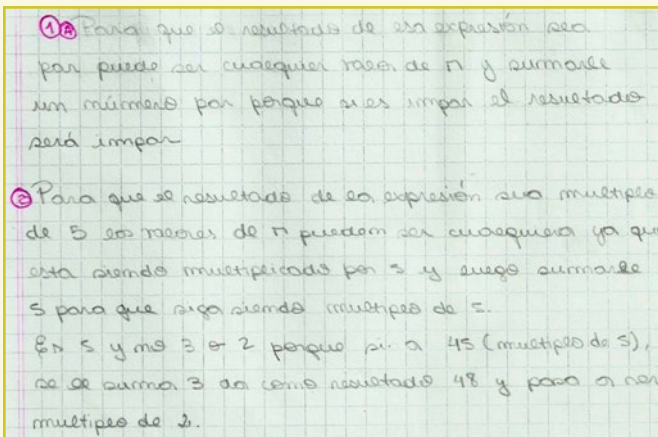 ① Ⓐ Para que el resultado de esa expresión sea
par puede ser cualquier valor de n y sumarle
un número par porque si es impar el resultado
será impar
② Para que el resultado de la expresión sea multiplo
de 5 los valores de n pueden ser cualquiera ya que
esta siendo multiplicado por 5 y luego sumarle
5 para que siga siendo multiplo de 5.
Es 5 y no 3 o 2 porque si a 45 (multiplo de 5),
se le suma 3 da como resultado 48 y pasa a ser
multiplo de 2.